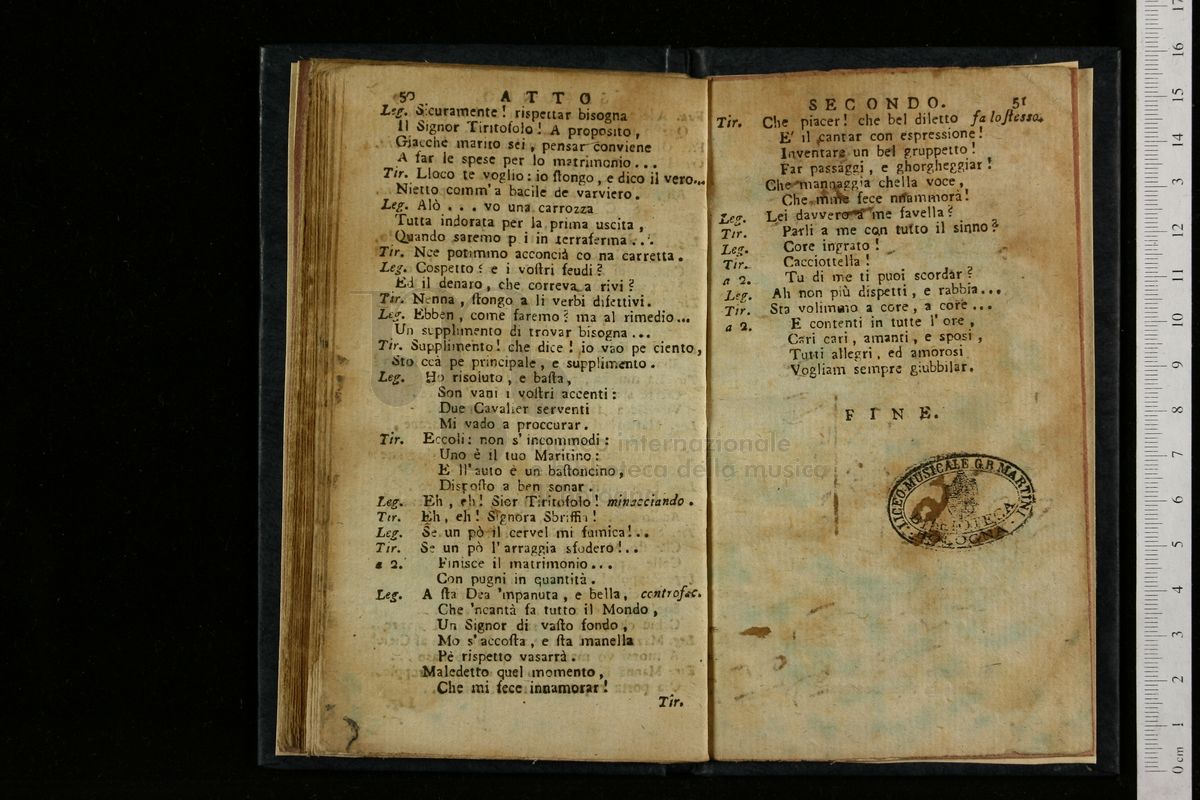 50 ATTO
Leg. Sicuramente! rispettar bisogna
Il Signor Tiritofolo! A proposito,
Giacchè marito sei, pensar conviene
A far le spese per lo matrimonio...
Tir. Lloco te voglio: io ſtongo, e dico il vero...
Nietto comm'a bacile de varviero.
Leg. Alò... vo una carrozza
Tutta indorata per la prima uscita,
Quando saremo p i in terraferma...
Tir. Nce potimmo acconcià co na carretta.
Leg. Cospetto! e i voſtri feudi?
Ed il denaro, che correva a rivi?
Tir. Nenna, ſtongo a li verbi difettivi.
Leg. Ebben, come faremo? ma al rimedio...
Un supplimento di trovar bisogna...
Tir. Supplimento! che dice! io vao pe ciento,
Sto ccà pe principale, e supplimento.
Leg. Ho risoluto, e baſta,
Son vani i voſtri accenti:
Due Cavalier serventi
Mi vado a proccurar.
Tir. Eccoli: non s'incommodi:
Uno è il tuo Maritino:
E ll'auto è un baſtoncino,
Disposto a ben sonar.
Leg. Eh, eh! Sier Tiritofolo! minacciando.
Tir. Eh, eh! Signora Sbriffia!
Leg. Se un pò il cervel mi fumica!..
Tir. Se un pò l'arraggia sfodero!..
a 2. Finisce il matrimonio...
Con pugni in quantità.
Leg. A ſta Dea 'mpanuta, e bella, controfac.
Che 'ncantà fa tutto il Mondo,
Un Signor di vaſto fondo,
Mo s'accoſta, e ſta manella
Pè rispetto vasarrà.
Maledetto quel momento,
Che mi fece innamorar!
Tir.
SECONDO. 51
Tir. Che piacer! che bel diletto fa lo ſtesso.
E' il cantar con espressione!
Inventare un bel gruppetto!
Far passaggi, e ghorgheggiar!
Che mannaggia chella voce,
Che mme fece nnammorà!
Leg. Lei davvero a me favella?
Tir. Parli a me con tutto il sinno?
Leg. Core ingrato!
Tir. Cacciottella!
a 2. Tu di me ti puoi scordar?
Leg. Ah non più dispetti, e rabbia...
Tir. Sta volimmo a core, a core...
a 2. E contenti in tutte l'ore,
Cari cari, amanti, e sposi,
Tutti allegri, ed amorosi
Vogliam sempre giubbilar.
FINE.
LICEO MUSICALE G.B. MARTINI
BIBLIOTECA
BOLOGNA
internazionale
della musica